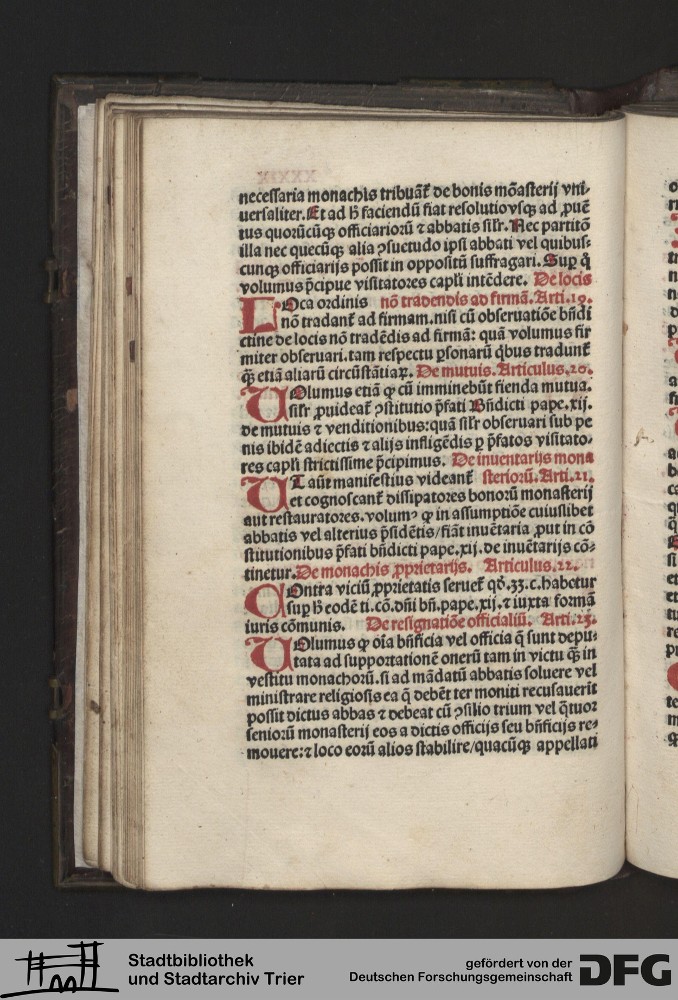 necessaria monachis tribuāt̄ de bonis mōasterij vni-
uersaliter. Et ad h̄ faciendū fiat resolutio vsq̄ꝫ ad ꝓuē
tus quorūcūqꝫ officiariorū ⁊ abbatis sil'r. Nec partitō
illa nec quecūqꝫ alia ꝯsuetudo ipsi abbati vel quibus-
cunqꝫ officiarijs possit in oppositū suffragari. Suꝑ q̄
volumus p̄cipue visitatores capl'i intēdere. De locis
LOca ordinis nō tradendis ad firmā. Arti. 19.
nō tradant̄ ad firmam. nisi cū obseruatiōe bn̄di
ctine de locis nō tradēdis ad firmā: quā volumus fir
miter obseruari. tam respectu ꝑsonarū q̄bus tradunt̄
qꝫ̄ etiā aliarū circūstātiaꝝ. De mutuis. Articulus. 20.
VOlumus etiā ꝙ cū imminebūt fienda mutua.
sil'r ꝓuideat̄ ꝯstitutio p̄fati Bn̄dicti pape. xij.
de mutuis ⁊ venditionibus: quā sil'r obseruari sub pe
nis ibidē adiectis ⁊ alijs infligēdis ꝑ p̄fatos visitato-
res capl'i strictissime p̄cipimus. De inuentarijs mona
VT aūt manifestius videant̄ steriorū. Arti. 21.
et cognoscant̄ dissipatores bonorū monasterij
aut restauratores. volumꝰ ꝙ in assumptiōe cuiuslibet
abbatis vel alterius p̄sidētis/ fiāt inuētaria ꝓut in cō
stitutionibus p̄fati bn̄dicti pape. xij. de inuētarijs cō-
tinetur. De monachis ꝓprietarijs. Articulus. 22.
COntra viciū ꝓprietatis seruet̄ qd̄. 33. c. habetur
suꝑ h̄ eodē ti. cō. dn̄i bn̄. pape. xij. ⁊ iuxta formā
iuris cōmunis. De resignatiōe officialiū. Arti. 23.
VOlumus ꝙ oīa bn̄ficia vel officia q̄ sunt depu-
tata ad supportationē onerū tam in victu qꝫ̄ in
vestitu monachorū. si ad mādatū abbatis soluere vel
ministrare religiosis ea q̄ debēt ter moniti recusauerīt
possit dictus abbas ⁊ debeat cū ꝯsilio trium vel q̄tuor
seniorū monasterij eos a dictis officijs seu bn̄ficijs re-
mouere: ⁊ loco eorū alios stabilire/ quacūqꝫ appellati
Stadtbibliothek
und Stadtarchiv Trier
gefördert von der
Deutschen Forschungsgemeinschaft
DFG